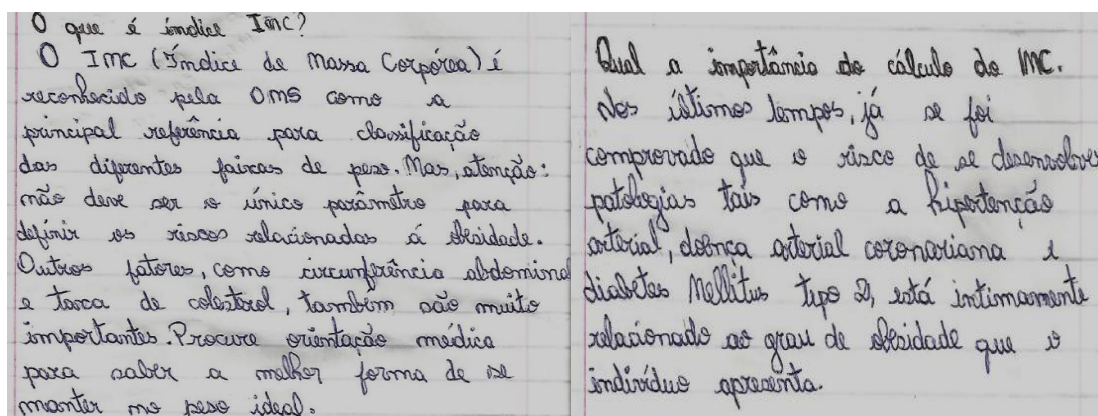 O que é índice IMC?
O IMC (Índice de Massa Corpórea) é
reconhecido pela OMS como a
principal referência para classificação
das diferentes faixas de peso. Mas, atenção:
não deve ser o único parâmetro para
definir os riscos relacionadas á obsidade.
Outros fatores, como circunferência abdominal
e taxa de colesterol, também são muito
importantes. Procure orientação médica
para saber a melhor forma de se
manter no peso ideal.
Qual a importância do cálculo do IMC.
Nos últimos tempos, já se foi
comprovado que o risco de se desenvolver
patologias tais como a hipertenção
arterial, doença arterial coronariana e
diabetes Mellitus tipo 2, está intimamente
relacionado ao grau de obsidade que o
indivíduo apresenta.